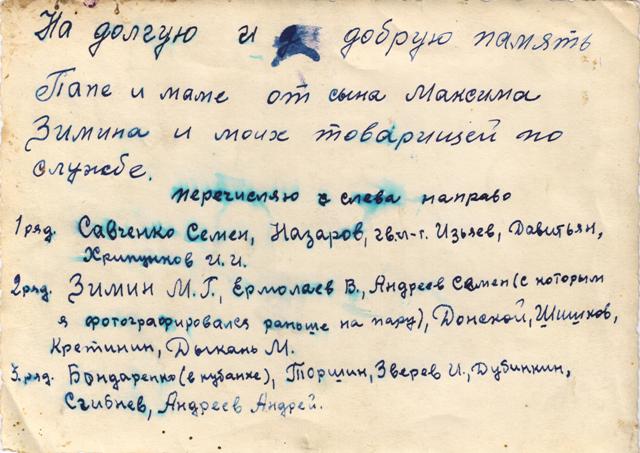 На долгую и добрую память
Папе и маме от сына Максима
Зимина и моих товарищей по
службе.
перечисляю с слева направо
1 ряд. Савченко Семен, Назаров, гв.л-т. Изъяев, Давитьян,
Хрипунков И.И.
2 ряд. Зимин М.Г., Ермолаев В., Андреев Самен (с которым
я фотографировался раньше на пару), Донской, Шишков,
Кретинин, Дыкань М.
3. ряд. Бондаренко (в кубанке), Торшин, Зверев И., Дубинкин,
Сгибнев, Андреев Андрей.